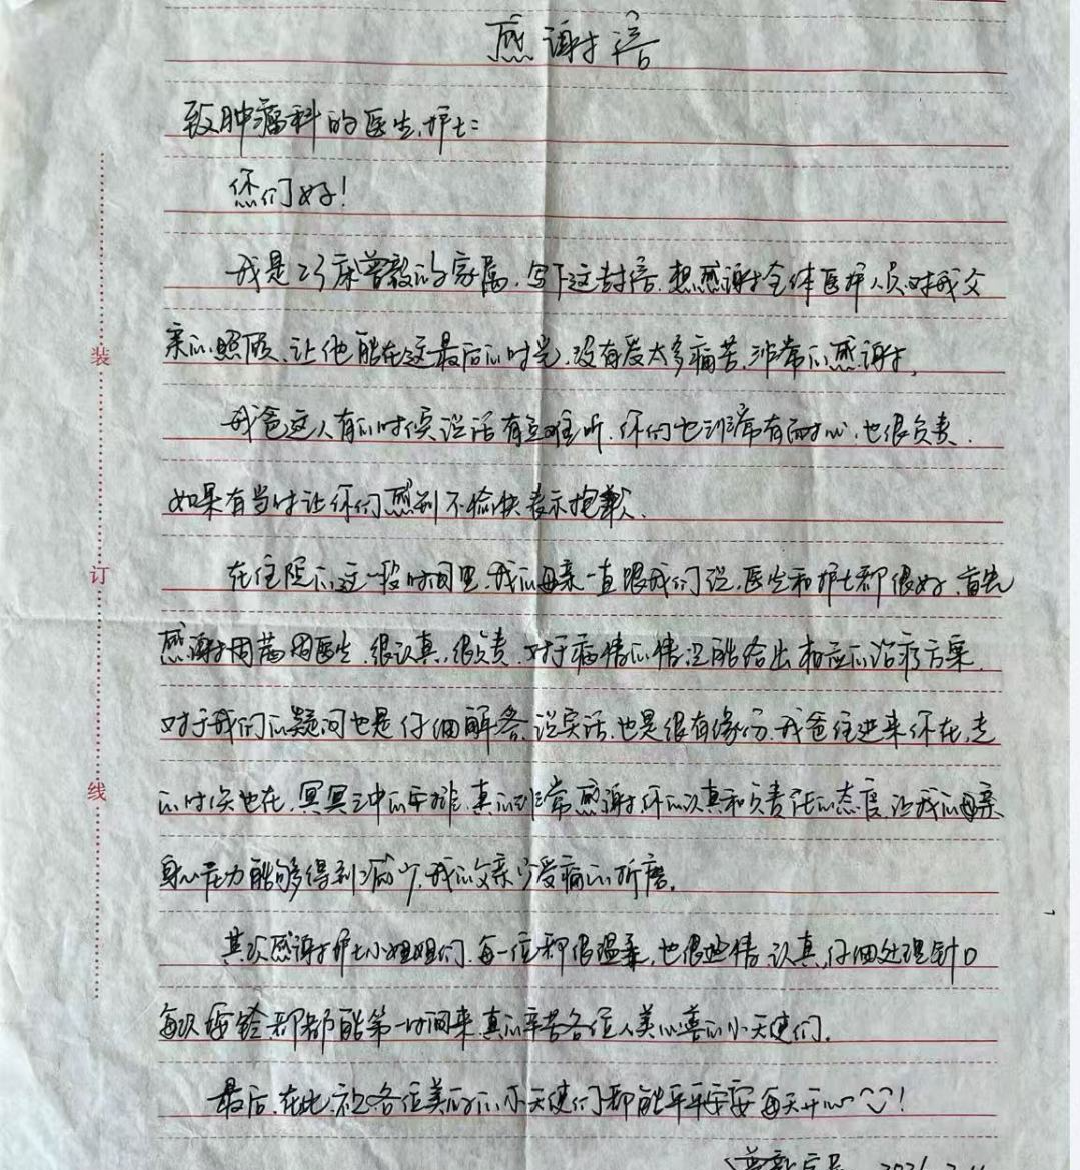 感谢信
致肿瘤科的医生、护士:
您们好!
我是23床曾毅的家属,写下这封信,想感谢全体医护人员对我父
亲的照顾、让他能在这最后的时光,没有受太多痛苦,非常的感谢。
我爸这人有的时候说话有点难听,你们也非常有耐心,也很负责.
如果有当时让你们感到不愉快表示抱歉、
在住院的这一段时间里,我的母亲一直跟我们说,医生和护士都很好,首先
感谢周 周医生,很认真,很负责,对于病情的情况能给出相应的治疗方案,
对于我们的疑问也是仔细解答,说实话,也是很有缘份,我爸住进来你在,走
的时候也在,冥冥之中的安排,真的非常感谢你的认真和负责任的态度,让我的母亲
身心压力能够得到减少,我的父亲少受病的折磨。
其次感谢护士小姐姐们,每一位都很温柔,也很热情,认真,仔细处理针口
每次按铃都能第一时间来,真的辛苦各位人美心善的小天使们.
最后,在此,祝各位美丽的小天使们都能平平安安每天开心!
装
订
线